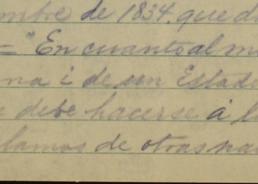 mbre de 1834. que d
= "En cuanto al m
na i de son Estado
debe hacerse á l
lamos de otras na